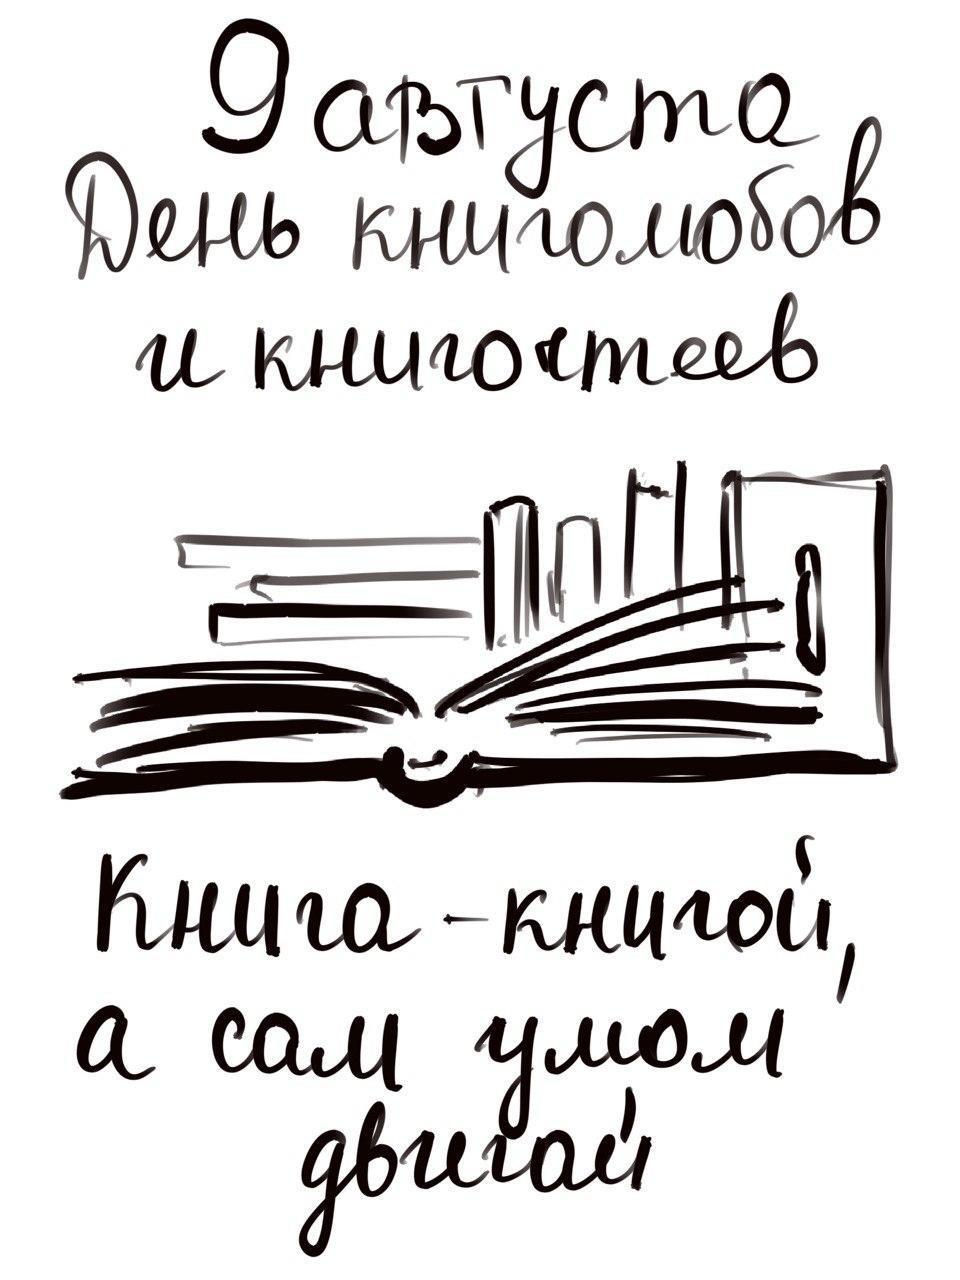 9 августа
День книголюбов
и книгочтеев
Книга - книгой,
а сам умом
двигай